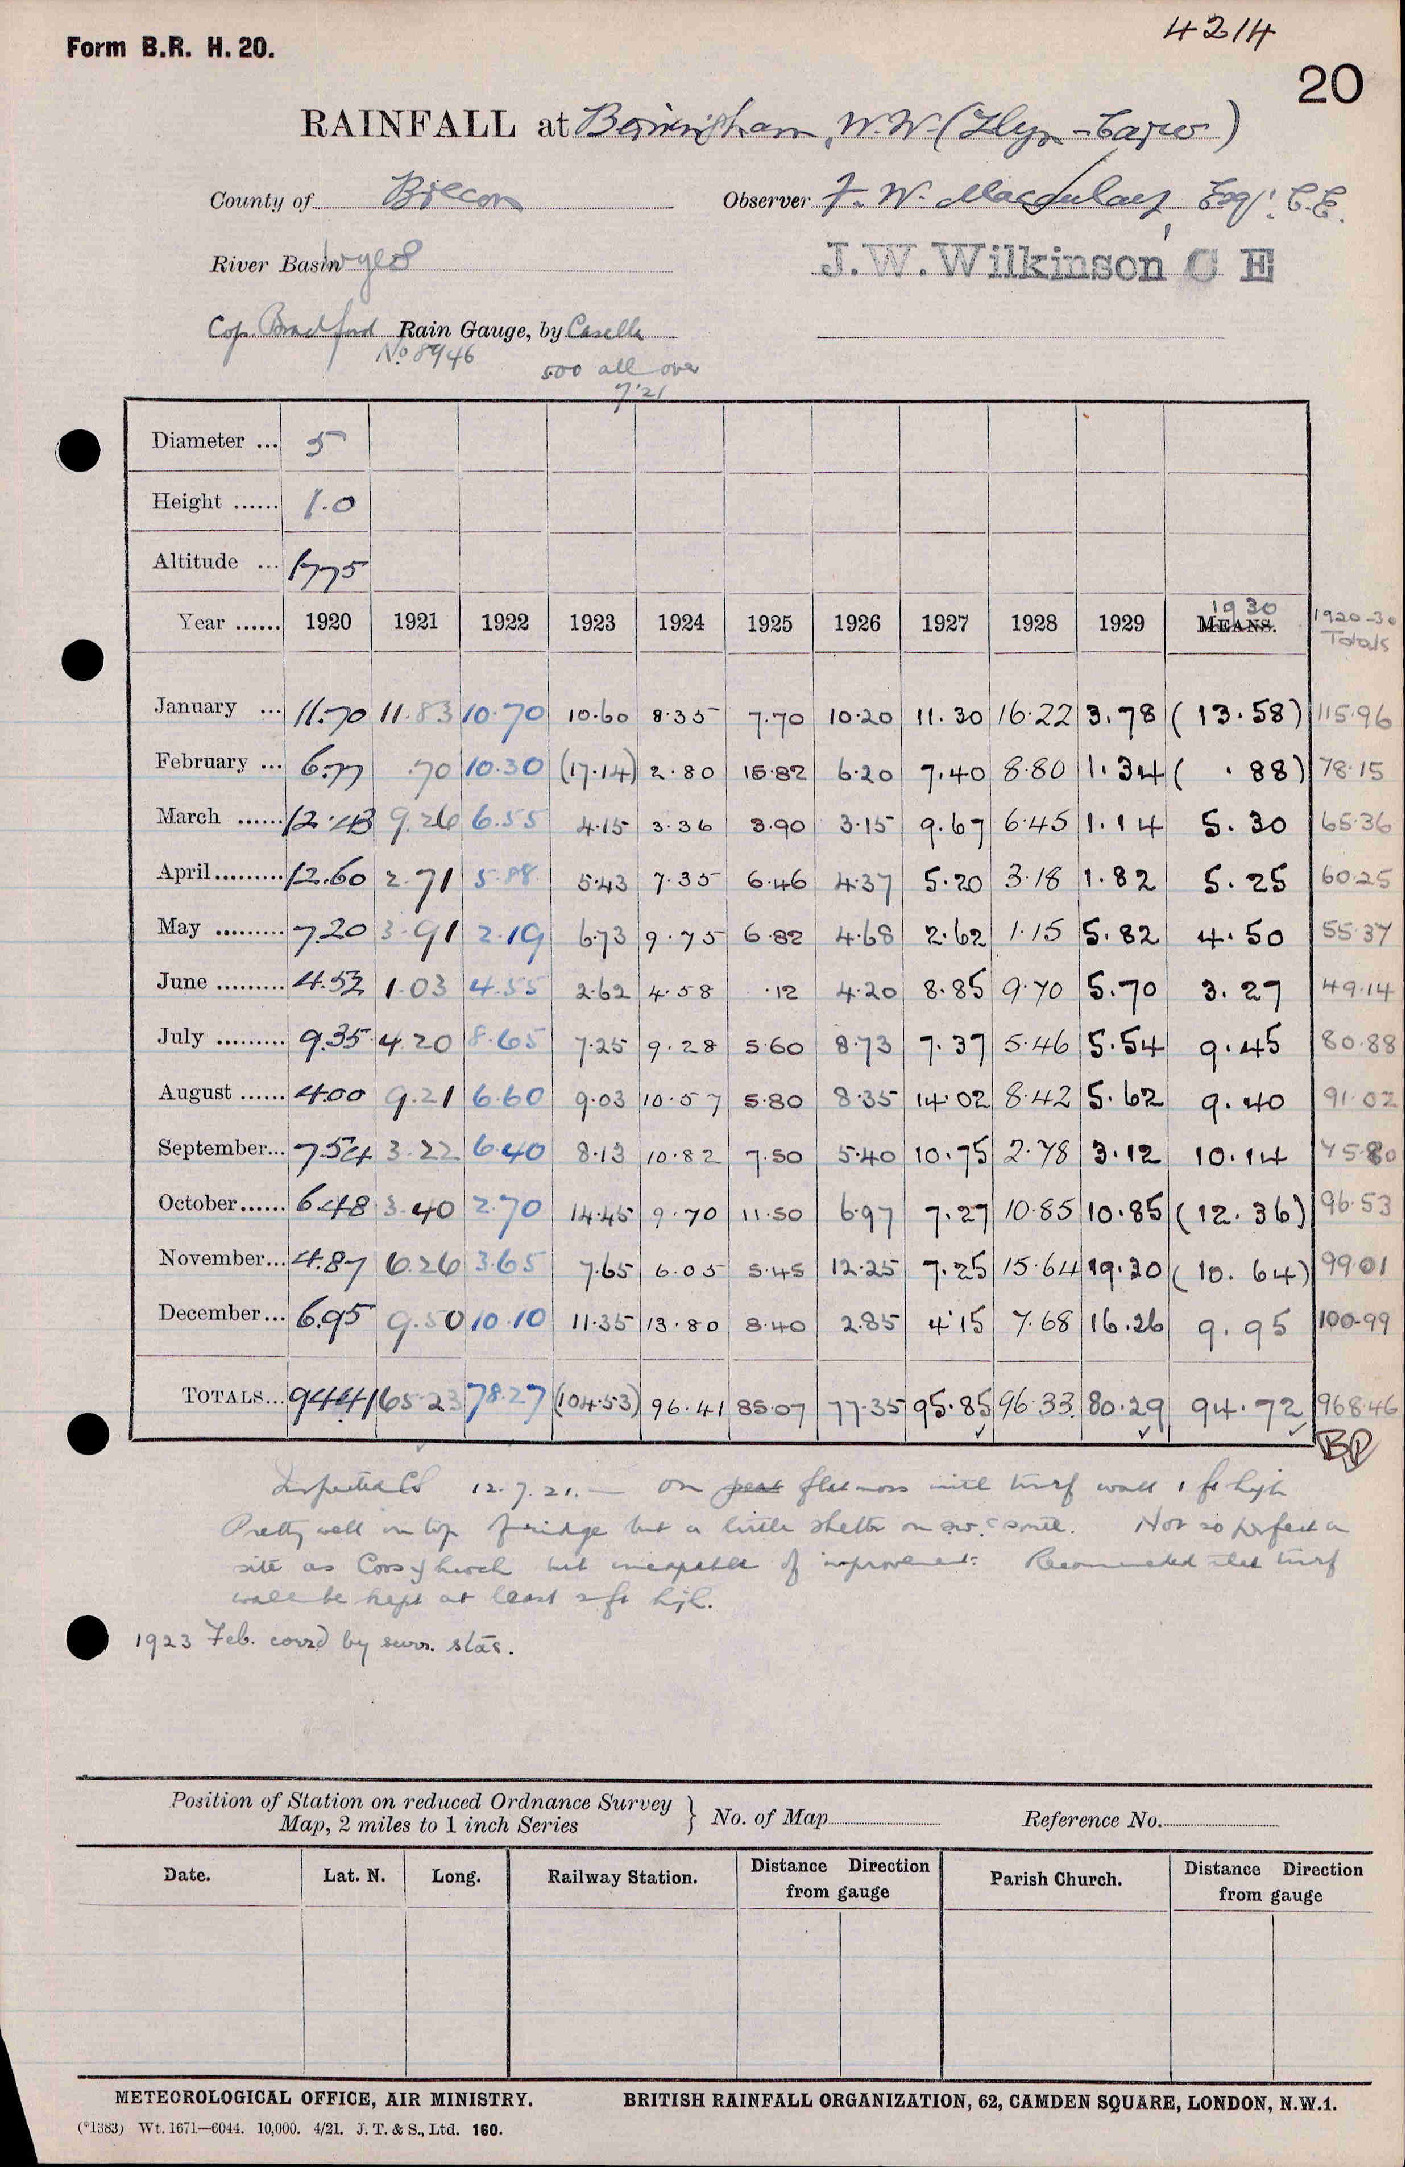 4214
Form B.R. H. 20.
20
RAINFALL at Birmingham, W.W. (Llyn-Carw)
County of Brecon Observer F. W. Macaulay, Esq. C.E.
River Basin Wye 8 J. W. Wilkinson C E
Cop. Bradford Rain Gauge, by Casella
No. 8946 500 all over
7'21
Diameter ... 5
Height ...... 1.0
Altitude ... 1775
Year ...... 1920 1921 1922 1923 1924 1925 1926 1927 1928 1929 MEANS. 1930 1920-30 Totals
January ... 11.70 11.83 10.70 10.60 8.35 7.70 10.20 11.30 16.22 3.78 (13.58) 115.96
February ... 6.77 .70 10.30 (17.14) 2.80 15.82 6.20 7.40 8.80 1.34 ( .88) 78.15
March ...... 12.43 9.26 6.55 4.15 3.36 3.90 3.15 9.67 6.45 1.14 5.30 65.36
April ......... 12.60 2.71 5.88 5.43 7.35 6.46 4.37 5.20 3.18 1.82 5.25 60.25
May ......... 7.20 3.91 2.19 6.73 9.75 6.82 4.68 2.62 1.15 5.82 4.50 55.37
June ......... 4.52 1.03 4.55 2.62 4.58 .12 4.20 8.85 9.70 5.70 3.27 49.14
July ......... 9.35 4.20 8.65 7.25 9.28 5.60 8.73 7.37 5.46 5.54 9.45 80.88
August ...... 4.00 9.21 6.60 9.03 10.57 5.80 8.35 14.02 8.42 5.62 9.40 91.02
September... 7.54 3.22 6.40 8.13 10.82 7.50 5.40 10.75 2.78 3.12 10.14 75.80
October...... 6.48 3.40 2.70 14.45 9.70 11.50 6.97 7.27 10.85 10.85 (12.36) 96.53
November... 4.87 6.26 3.65 7.65 6.05 5.45 12.25 7.25 15.64 19.30 (10.64) 99.01
December... 6.95 9.50 10.10 11.35 13.80 8.40 2.85 4.15 7.68 16.26 9.95 100.99
TOTALS... 94.41 65.23 78.27 (104.53) 96.41 85.07 77.35 95.85 96.33 80.29 94.72 968.46
BP
Inspected 12.7.21. — On peat flat moss with turf wall 1 ft high
Pretty well on top of ridge but a little shelter on SW. & south. Not so perfect a
site as but incapable of improvement. Recommended that turf
wall be kept at least 2 ft high.
1923 Feb. corr'd by surr. stas.
Position of Station on reduced Ordnance Survey
Map, 2 miles to 1 inch Series } No. of Map Reference No.
Date. Lat. N. Long. Railway Station. Distance Direction from gauge Parish Church. Distance Direction from gauge
METEOROLOGICAL OFFICE, AIR MINISTRY. BRITISH RAINFALL ORGANIZATION, 62, CAMDEN SQUARE, LONDON, N.W.1.
(*1383) Wt. 1671—6044. 10,000. 4/21. J. T. & S., Ltd. 160.